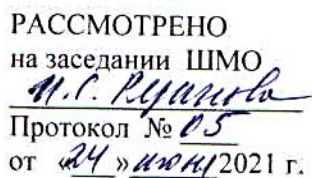 РАССМОТРЕНО
на заседании ШМО
И.С.
Протокол № 05
от «24» июня 2021 г.